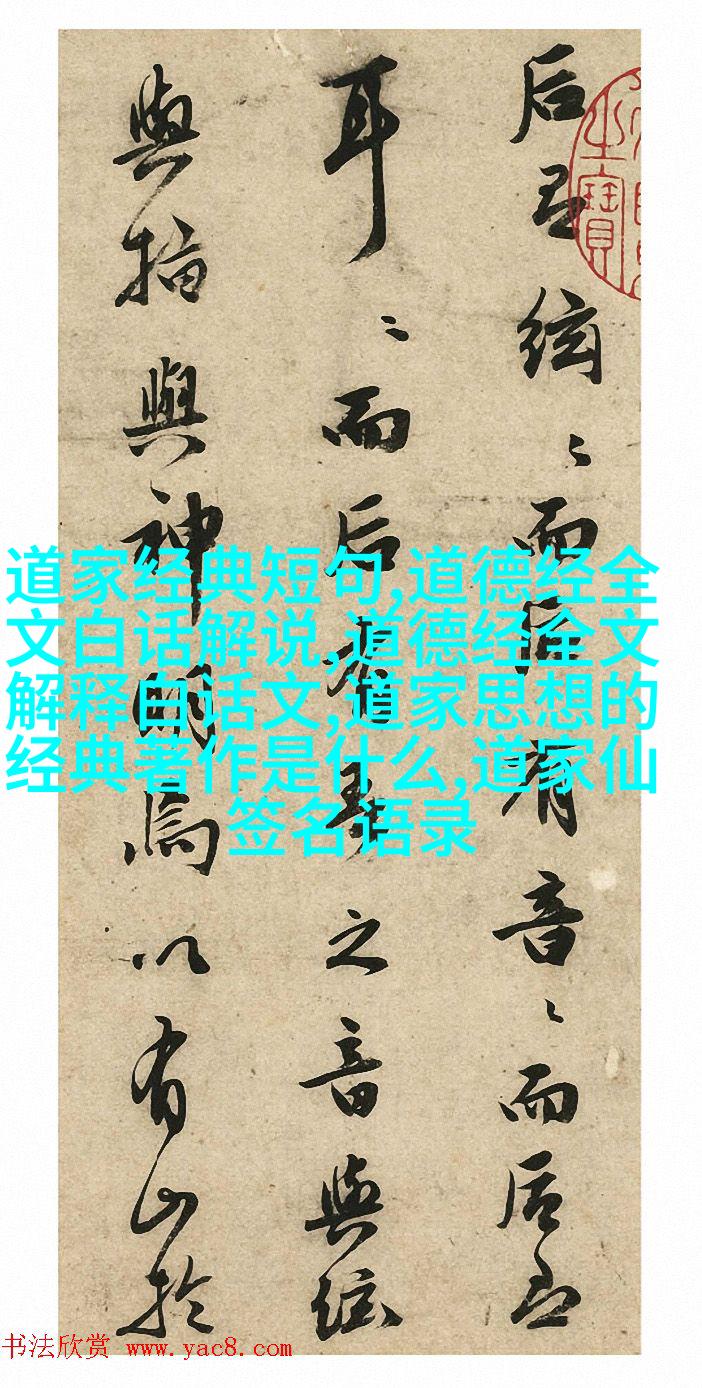 后絃〻而后有音〻而后
耳〻而后有之音與絃
與指與神明為以有山於
之寶
道家经典短句,道德经全
文白话解说,道德经全文
解释白话文,道家思想的
经典著作是什么,道家仙
签名语录
书法欣赏 www.yac8.com